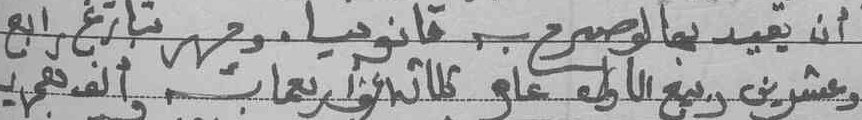 أن تقيد بما لوصرح به قانونيا. وحرر بتاريخ رابع
وعشرين ربيع الأول عام ثلاثة وأربعمائة وألف هجرية